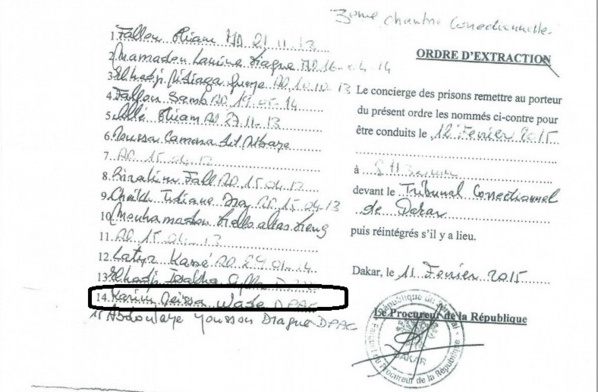 3ème chambre Correctionnelle
1. Fallou Thiam AD 21.11.13
2. Mamadou Lamine Diagne AD 16.04.14
3. Elhadji Ndiaga AD 10.13
4. Fallou Samb AD 19.05.14
5. Thiam AD 27.11.13
6. Youssou Camara dit Mbaye
7. AD 15.04.13
8. Birahim Fall AD 15.04.13
9. Cheikh Tidiane AD 15.04.13
10. Mouhamadou alias
11. AD 15.04.13
12. Latyr Kassé AD 29.01.14
13. Elhadji Cylla
14. Karim Meissa Wade DPAC
15 Abdoulaye Youssou Diagne DPAC
ORDRE D'EXTRACTION
Le concierge des prisons remettre au porteur
du présent ordre les nommés ci-contre pour
être conduits le 12 Fevrier 2015
à 8H
devant le Tribunal Correctionnel
de Dakar
puis réintégrés s'il y a lieu.
Dakar, le 11 Fevrier 2015
Le Procureur de la République
République du Sénégal
DAKAR
Procureur de la République